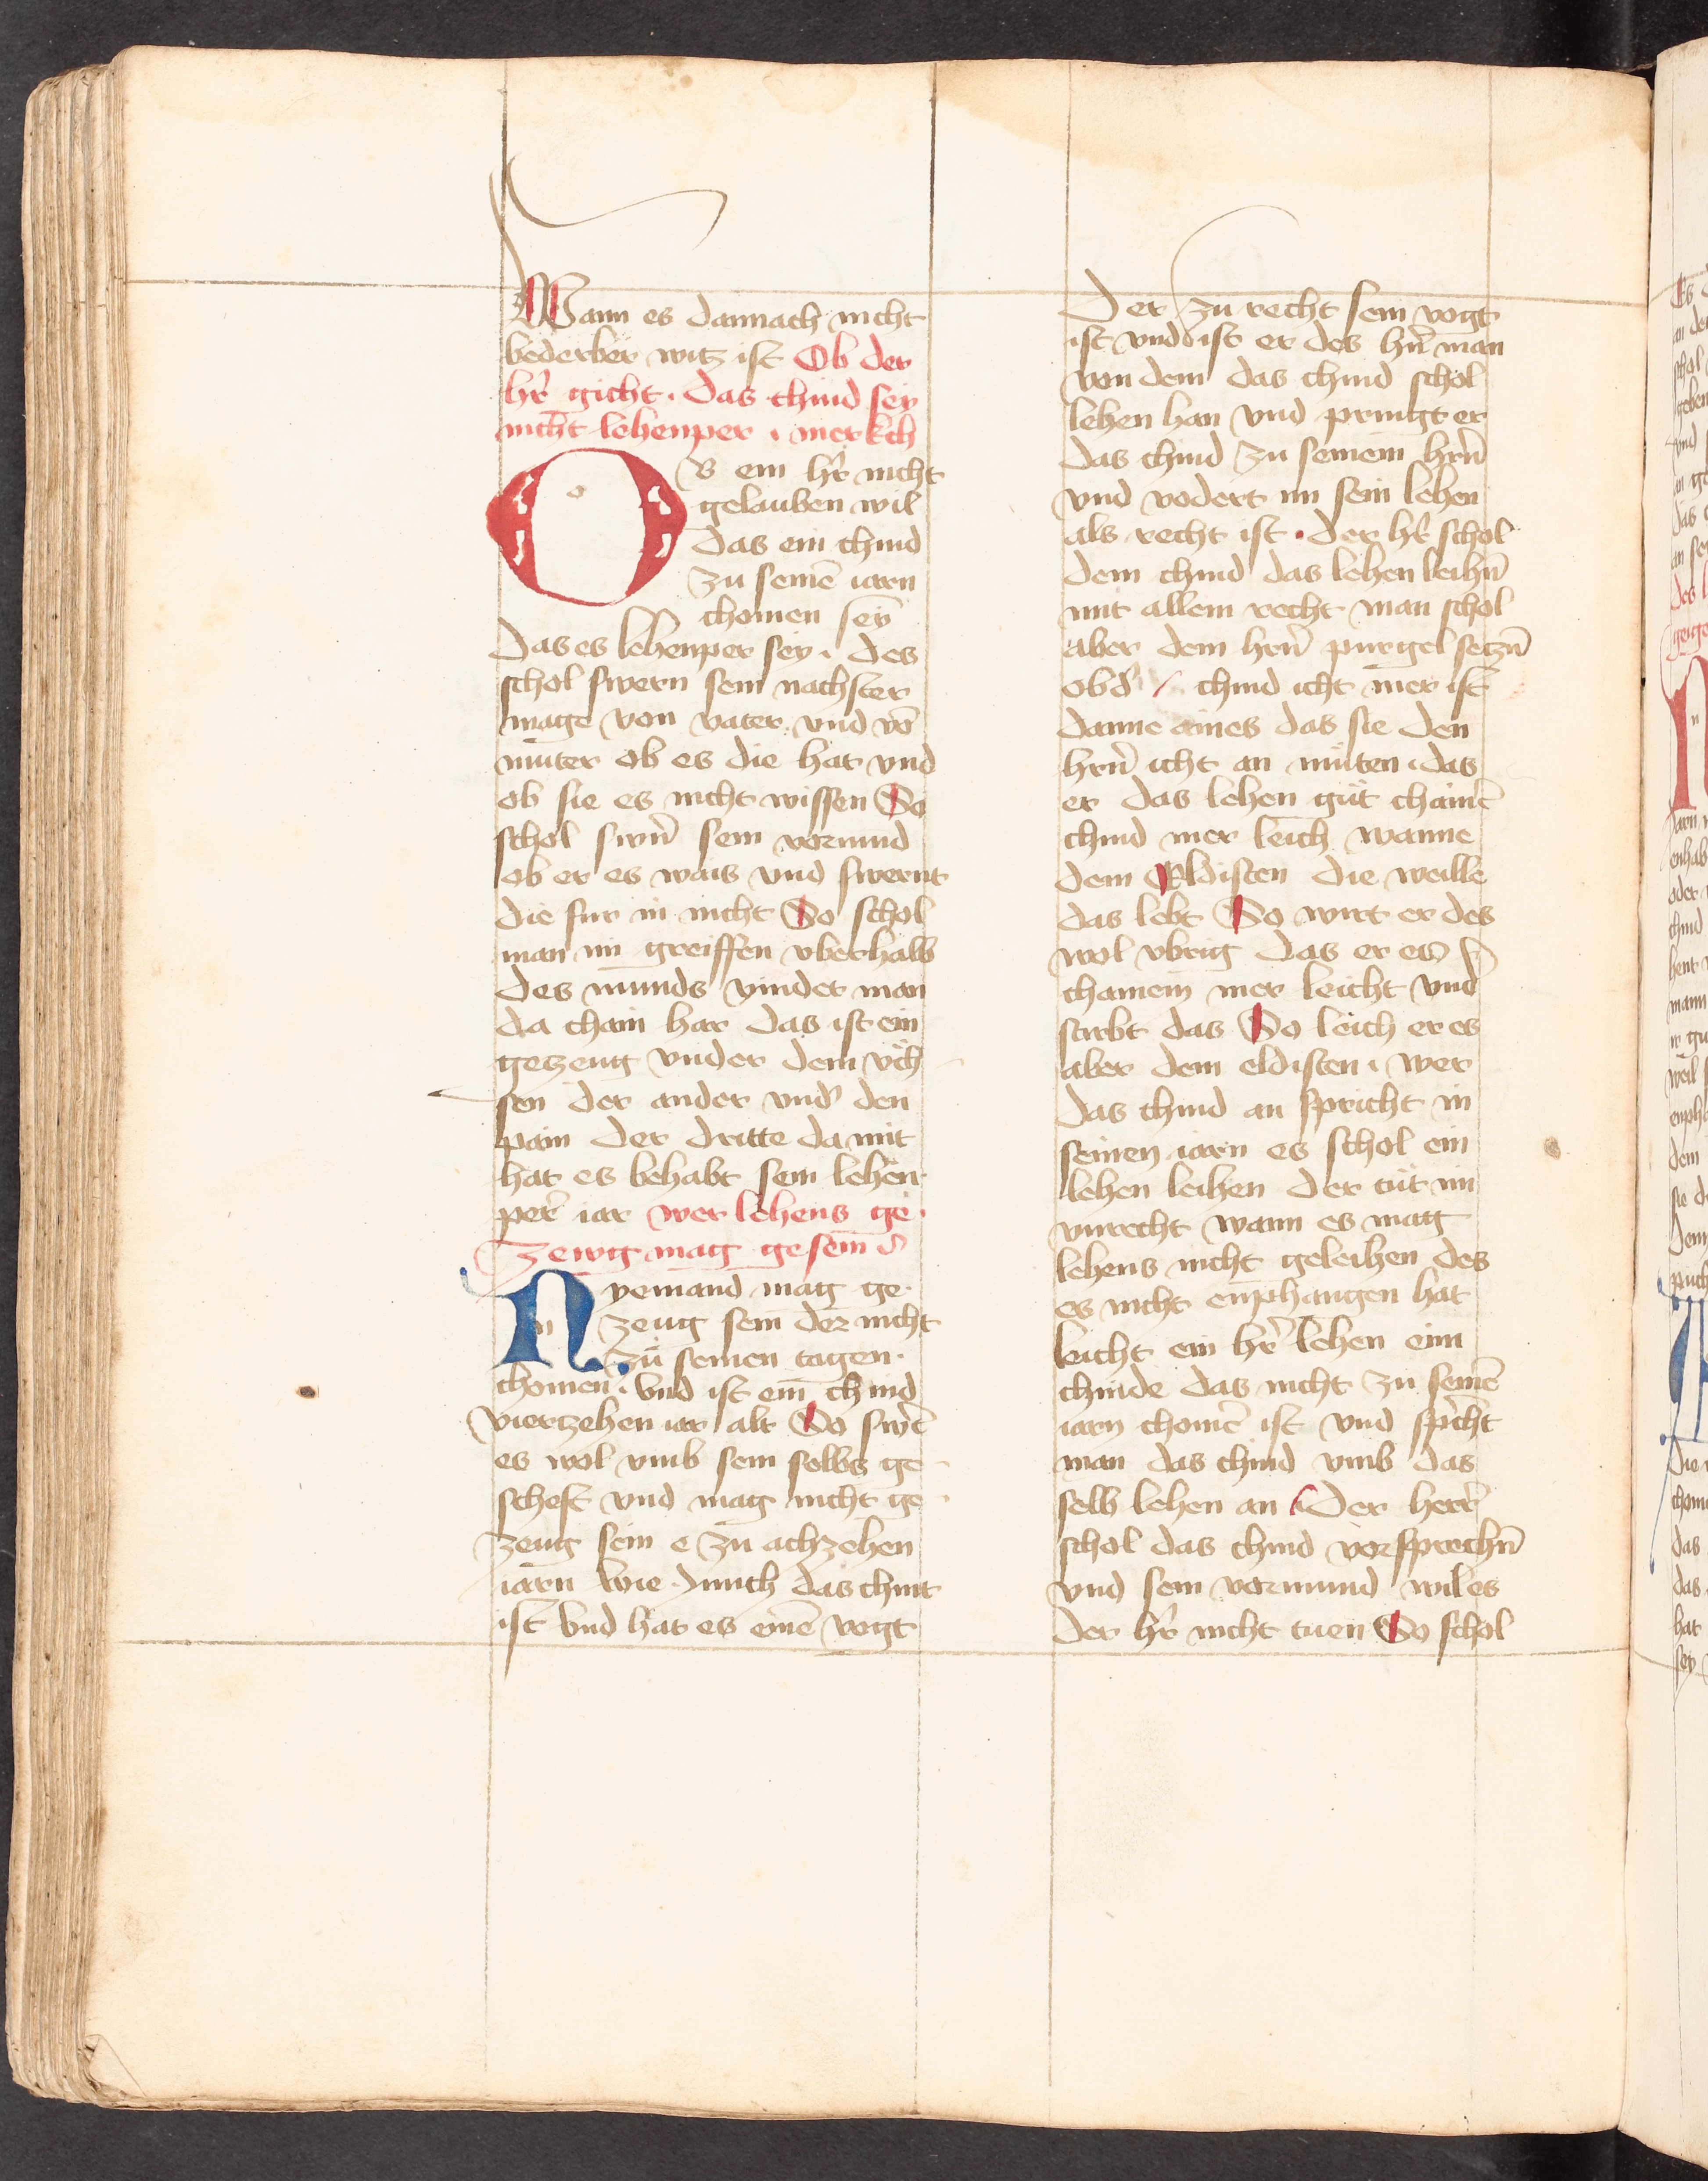 Wann es dannach nicht
bederber witz ist Ob der
hr̄ gicht · das chind sey
nicht lehenper · merkch
Ob ein hr̄ nicht
gelauben wil
das ein chind
zu seinē iarn
chomen sey
das es lehenper sey · des
schol swern sein nachster
mage von vater vnd vō
muter ob es die hat vnd
ob sie es nicht wissen So
schol swn̄ sein vormund
ob er es wais vnd swernt
die fur in nicht So schol
man im greiffen vberhalb
des munds vindet man
da chain har das ist ein
getzeug vnder dem vch
sen der ander vnd' den
pain der dritte da mit
hat es behabt sein lehen
per̄ iar wer lehens ge ·
zewg mag gesein
Nyemand mag ge
zeug sein der nicht
zu seinen tagen ·
chomen · vnd ist ein chind
viertzehen iar alt So swēt
es wol vmb sein selbs ge
scheft vnd mag nicht ge
zeug sein e zu achzehen
iarn wie junch das chint
ist vnd hat es einē vogt
der zu recht sein vogt
ist vnd ist er des hn̄ man
von dem das chind schol
lehen han vnd pringt er
das chind zu seinem hrn̄
vnd vodert im sein lehen
als recht ist · der hr̄ schol
dem chind das lehen leihn̄
mit allem recht man schol
aber dem hrn̄ purgel setzn̄
ob d' chind icht mer ist
danne aines das sie den
hrn̄ icht an muten · das
er das lehen gut chainē
chind mer leich wanne
dem Eldisten die weille
das lebt So wirt er des
wol vbrig das er es
chainem mer leicht vnd
stirbt das So leich er es
aber dem eldisten · wer
das chind an spricht in
seinen iarn es schol ein
lehen leihen der tut im
vnrecht wann es mag
lehens nicht geleihen des
es nicht emphangen hat
leicht ein hr̄ lehen eim
chinde das nicht zu seinē
iarn chomē ist vnd sp̄cht
man das chind vmb das
selb lehen an Der herr̄
schol das chind vorsprechn̄
vnd sein vormund wil es
der hr̄ nicht tuen So schol